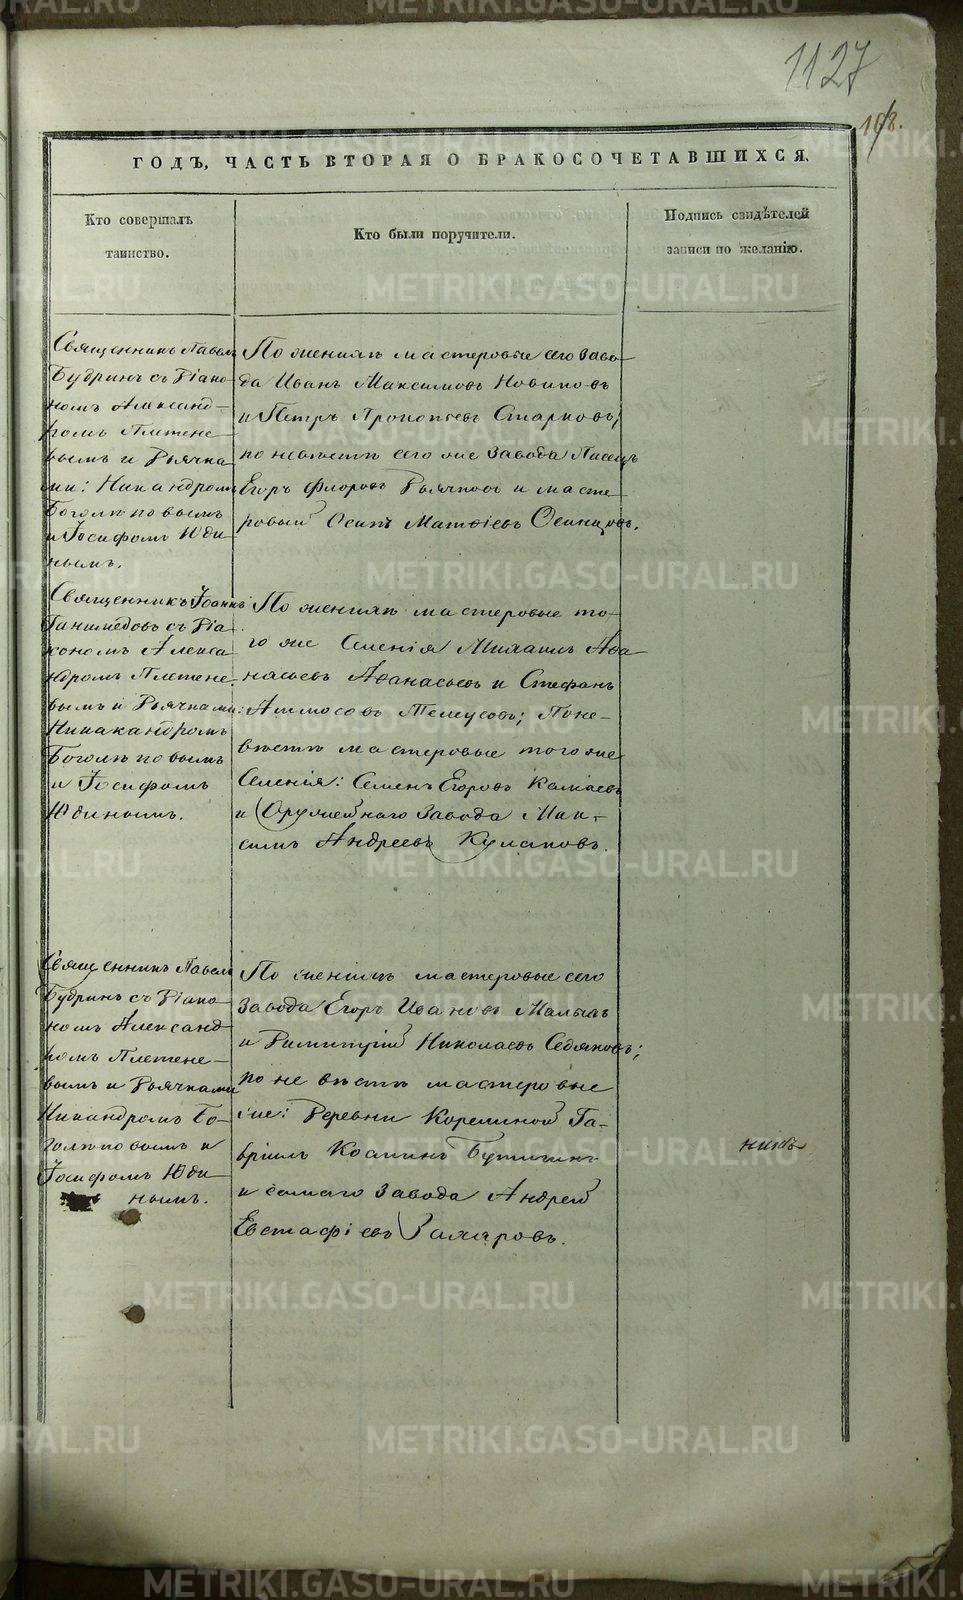 1127
168.
ГОДЪ, ЧАСТЬ ВТОРАЯ О БРАКОСОЧЕТАВШИХСЯ,
Кто совершалъ
таинство.
Кто были поручители.
Подпись свидѣтелей
записи по желанію.
Священникъ Павелъ
Будринъ съ Діако-
номъ Александ-
ромъ Плетене-
вымъ и Дьячка-
ми: Никандромъ
Боголѣповымъ
и Іосифомъ Юди-
нымъ.
По женихѣ мастеровые сего Заво-
да Иванъ Максимовъ Новиковъ
и Петръ Прокопьевъ Старковъ;
по невѣстѣ сего же Завода Писецъ
Егоръ Флоровъ Дьячковъ и масте-
ровый Осипъ Матѳіевъ Осинцовъ.
Священникъ Іоаннъ
съ Діа-
кономъ Алекса-
ндромъ Плетене-
вымъ и Дьячками:
Никакандромъ
Боголѣповымъ
и Іосифомъ
Юдинымъ.
По женихѣ мастеровые то-
го же Селенія Михаилъ Аѳа-
насьевъ Аѳанасьевъ и Стефанъ
Аммосовъ; Поне-
вѣстѣ мастеровые того же
Селенія: Семенъ Егоровъ
и Оружейнаго Завода Мак-
симъ Андреевъ Кулаковъ.
Священникъ Павелъ
Будринъ съ Діако-
номъ Александ-
ромъ Плетене-
вымъ и Дьячками
Никандромъ Бо-
голѣповымъ и
Іосифомъ Юди-
нымъ.
По женихѣ мастеровые сего
Завода Егоръ Ивановъ
и Димитрій Николаевъ Седяковъ;
по невѣстѣ мастеровые
же: Деревни Корелиной Га-
вріилъ Козминъ
и самаго Завода Андрей
Евстафіевъ Захаровъ.
METRIKI.GASO-URAL.RU